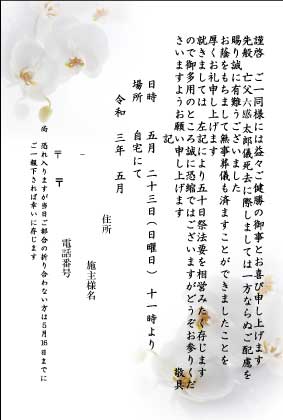 謹啓　ご一同様には益々ご健勝の御事とお喜び申し上げます
先般　亡父六感太郎儀死去に際しましては一方ならぬご配慮を
賜り誠に有難うございました
お蔭をもちまして無事葬儀も済ますことができましたことを
厚くお礼申し上げます
就きましては　左記により五十日祭法要を相営みたく存じます
ので御多用のところ誠に恐縮ではございますがどうぞお参りくだ
さいますようお願い申し上げます　敬具
記
日時　五月　二十三日（日曜日）　十一時より
場所　自宅にて
令和　三年　五月
住所
施主様名
電話番号
〒　〒
尚　恐れ入りますが当日ご都合の折り合わない方は５月16日までに
ご一報下されば幸いに存じます